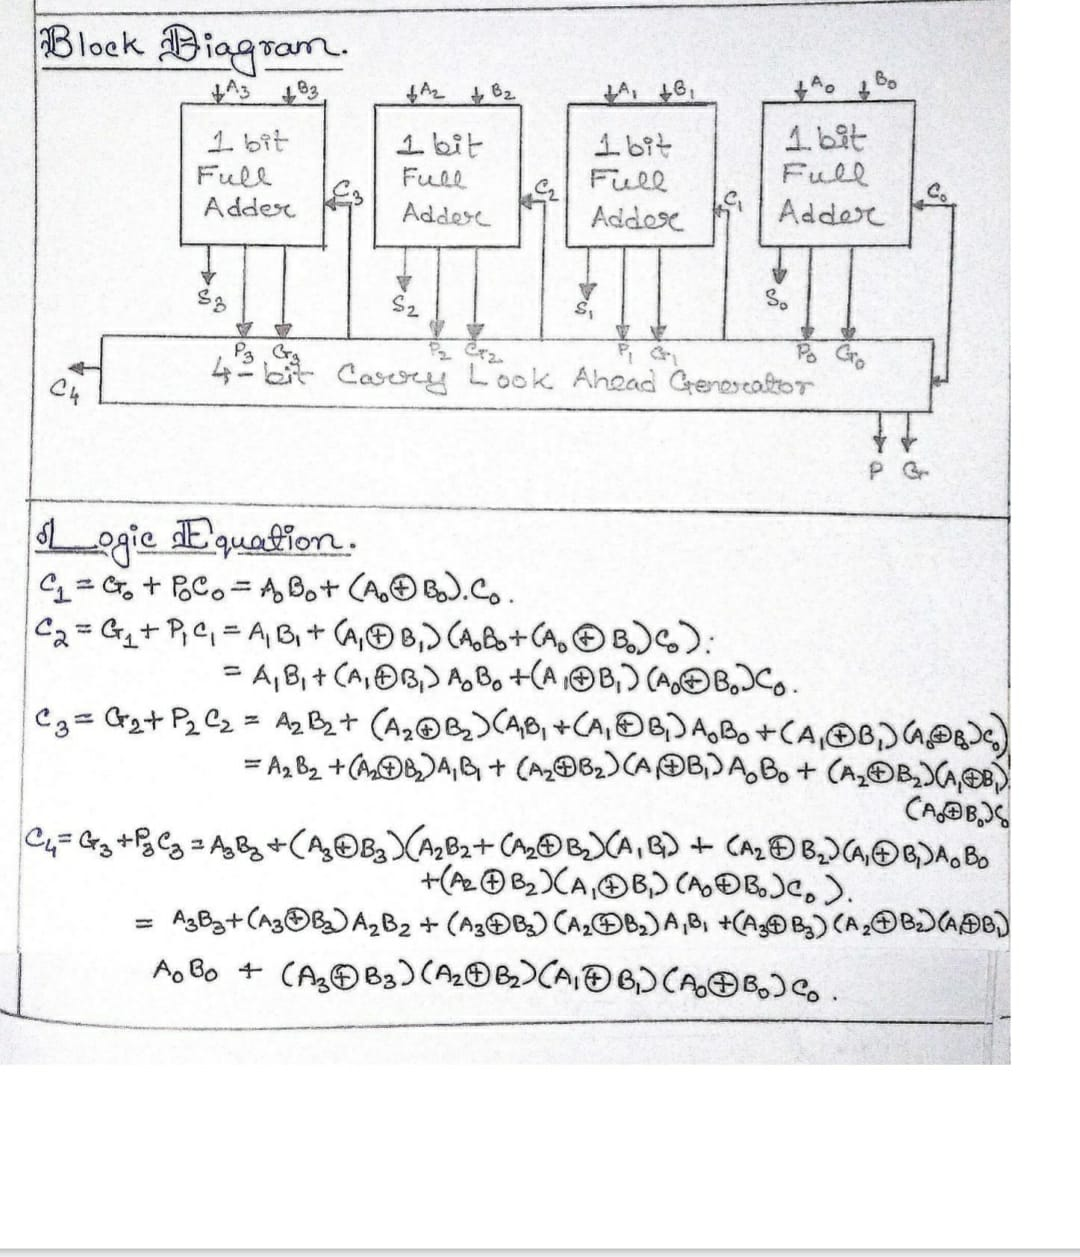 Block Diagram.
A₃ B₃ A₂ B₂ A₁ B₁ A₀ B₀
1 bit 1 bit 1 bit 1 bit
Full Full Full Full
Adder C₃ Adder C₂ Adder C₁ Adder C₀
S₃ S₂ S₁ S₀
P₃ G₃ P₂ G₂ P₁ G₁ P₀ G₀
C₄ 4-bit Carry Look Ahead Generator
P G
Logic Equation.
C₁ = G₀ + P₀C₀ = A₀B₀ + (A₀⊕B₀).C₀.
C₂ = G₁ + P₁C₁ = A₁B₁ + (A₁⊕B₁)(A₀B₀+(A₀⊕B₀)C₀):
= A₁B₁ + (A₁⊕B₁) A₀B₀ + (A₁⊕B₁)(A₀⊕B₀)C₀.
C₃ = G₂ + P₂C₂ = A₂B₂ + (A₂⊕B₂)(A₁B₁ + (A₁⊕B₁)A₀B₀ + (A₁⊕B₁)(A₀⊕B₀)C₀)
= A₂B₂ + (A₂⊕B₂)A₁B₁ + (A₂⊕B₂)(A₁⊕B₁)A₀B₀ + (A₂⊕B₂)(A₁⊕B₁)
(A₀⊕B₀)C₀
C₄ = G₃ + P₃C₃ = A₃B₃ + (A₃⊕B₃)(A₂B₂ + (A₂⊕B₂)(A₁B₁) + (A₂⊕B₂)(A₁⊕B₁)A₀B₀
+(A₂⊕B₂)(A₁⊕B₁)(A₀⊕B₀)C₀).
= A₃B₃ + (A₃⊕B₃)A₂B₂ + (A₃⊕B₃)(A₂⊕B₂)A₁B₁ + (A₃⊕B₃)(A₂⊕B₂)(A₁⊕B₁)
A₀B₀ + (A₃⊕B₃)(A₂⊕B₂)(A₁⊕B₁)(A₀⊕B₀)C₀.